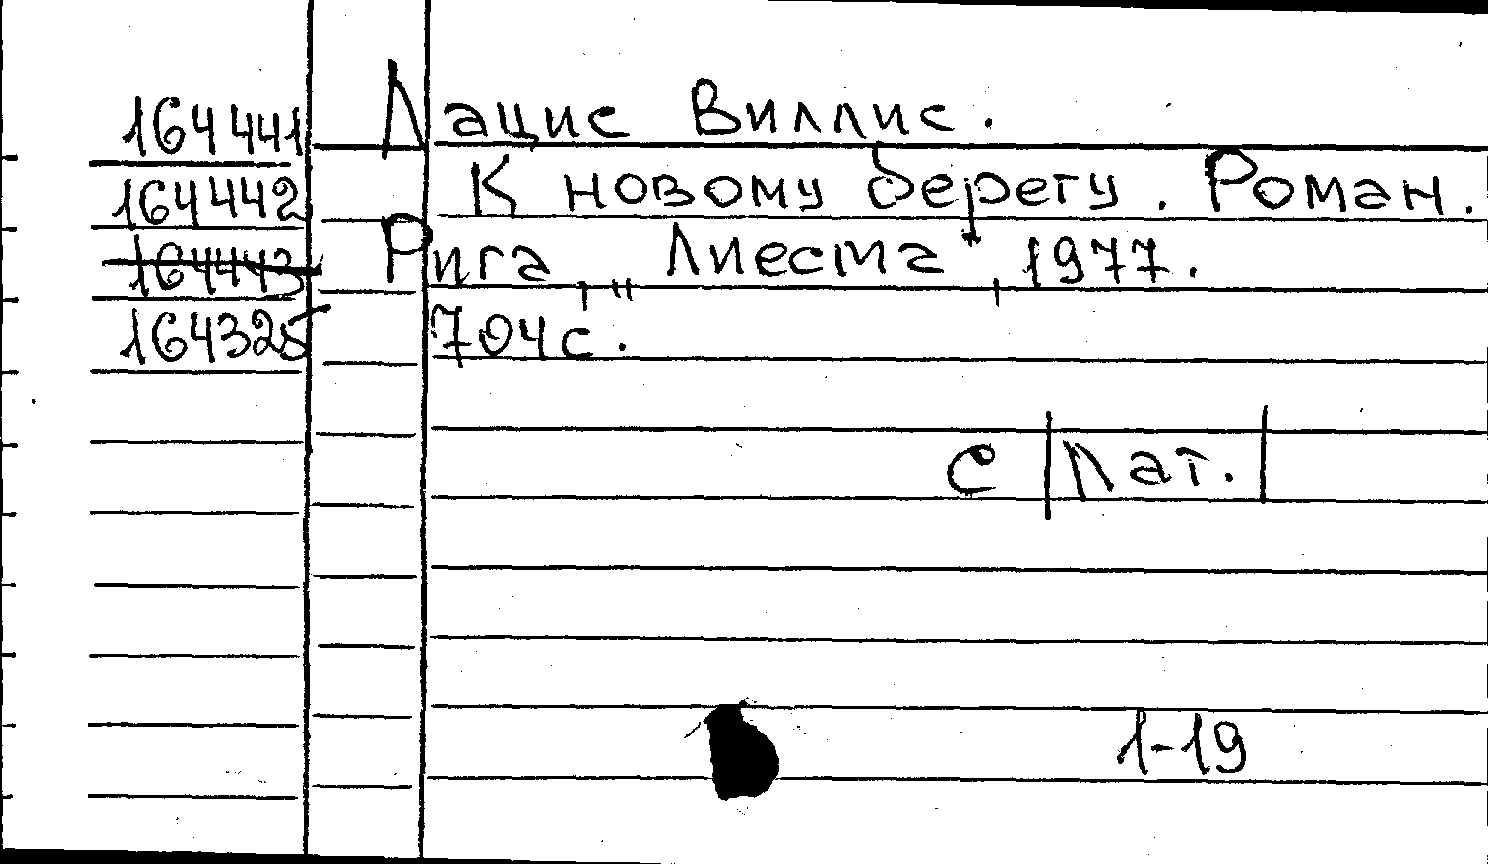 164441 Лацис Виллис.
164442 К новому берегу. Роман.
164443 Рига, „Лиесма", 1977.
164325 704с.
С|Лат.|
1-19